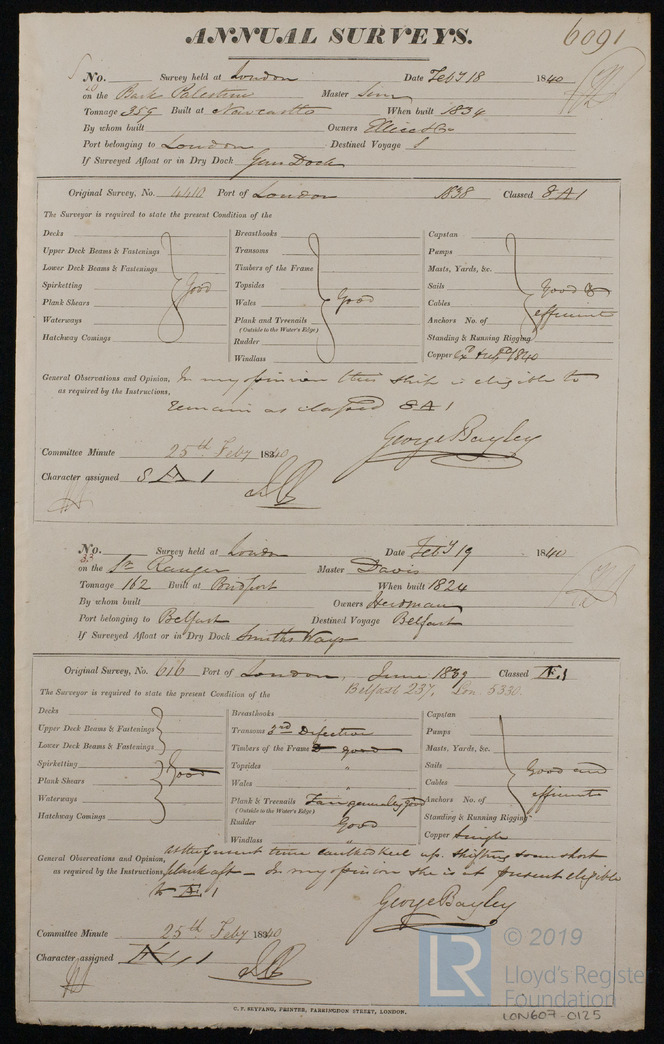 ANNUAL SURVEYS.
6091
No. Survey held at London Date Feby 18 1840
on the Bark Palestine Master Sim
Tonnage 359 Built at Newcastle When built 1834
By whom built Owners Ellice & Co
Port belonging to London Destined Voyage
If Surveyed Afloat or in Dry Dock Gun Dock
Original Survey, No. 4410 Port of London 1838 Classed 8 A 1
The Surveyor is required to state the present Condition of the
Decks
Upper Deck Beams & Fastenings
Lower Deck Beams & Fastenings
Spirketting
Good
Plank Shears
Waterways
Hatchway Comings
Breasthooks
Transoms
Timbers of the Frame
Topsides
Wales
Good
Plank and Treenails
(Outside to the Water's Edge)
Rudder
Windlass
Capstan
Pumps
Masts, Yards, &c.
Sails
Good &
Cables
efficient
Anchors No. of
Standing & Running Rigging
Copper 1840
General Observations and Opinion, In my opinion this ship is eligible to
as required by the Instructions, remain as classed 8 A 1
George Bayley
Committee Minute 25th Feby 1840
Character assigned 8 A 1
No. Survey held at London Date Feby 19 1840
on the Sr Ranger Master Davis
Tonnage 162 Built at Bridport When built 1824
By whom built Owners Herdman
Port belonging to Belfast Destined Voyage Belfast
If Surveyed Afloat or in Dry Dock Smiths Ways
Original Survey, No. 616 Port of London June 1839 Classed Æ 1
The Surveyor is required to state the present Condition of the
Belfast 237, Lon. 5330.
Decks
Upper Deck Beams & Fastenings
Lower Deck Beams & Fastenings
Spirketting
Good
Plank Shears
Waterways
Hatchway Comings
Breasthooks
Transoms 3rd Defective
Timbers of the Frame good
Topsides "
Wales "
Plank & Treenails Fair generally good
(Outside to the Water's Edge)
Rudder Good
Windlass "
Capstan
Pumps
Masts, Yards, &c.
Sails
Good and
Cables
efficient
Anchors No. of
Standing & Running Rigging
Copper Single
General Observations and Opinion, at the present time caulked keel up. shifting some short
as required by the Instructions, plank aft – In my opinion she is at present eligible
to Æ 1
George Bayley
Committee Minute 25th Feby 1840
Character assigned Æ 1
C. F. SEYFANG, PRINTER, FARRINGDON STREET, LONDON.
LR
© 2019
Lloyd's Register
Foundation
LON607-0125